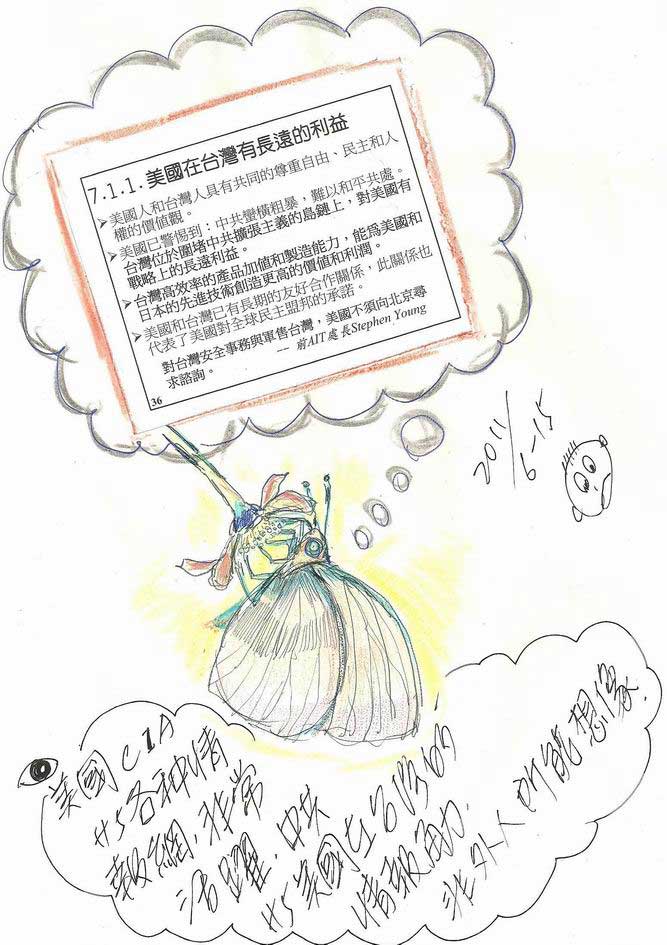 7.1.1. 美國在台灣有長遠的利益
➢美國人和台灣人具有共同的尊重自由、民主和人
權的價值觀。
➢美國已警惕到：中共蠻橫粗暴，難以和平共處。
台灣位於圍堵中共擴張主義的島鏈上，對美國有
戰略上的長遠利益。
➢台灣高效率的產品加值和製造能力，能為美國和
日本的先進技術創造更高的價值和利潤。
➢美國和台灣已有長期的友好合作關係，此關係也
代表了美國對全球民主盟邦的承諾。
對台灣安全事務與軍售台灣，美國不須向北京尋
求諮詢。
-- 前AIT處長Stephen Young
36
2011/6-15
美國CIA
的各种情
報網，非常
活躍，中共
的美國在台灣的
情報角力，
非外人所能想像.